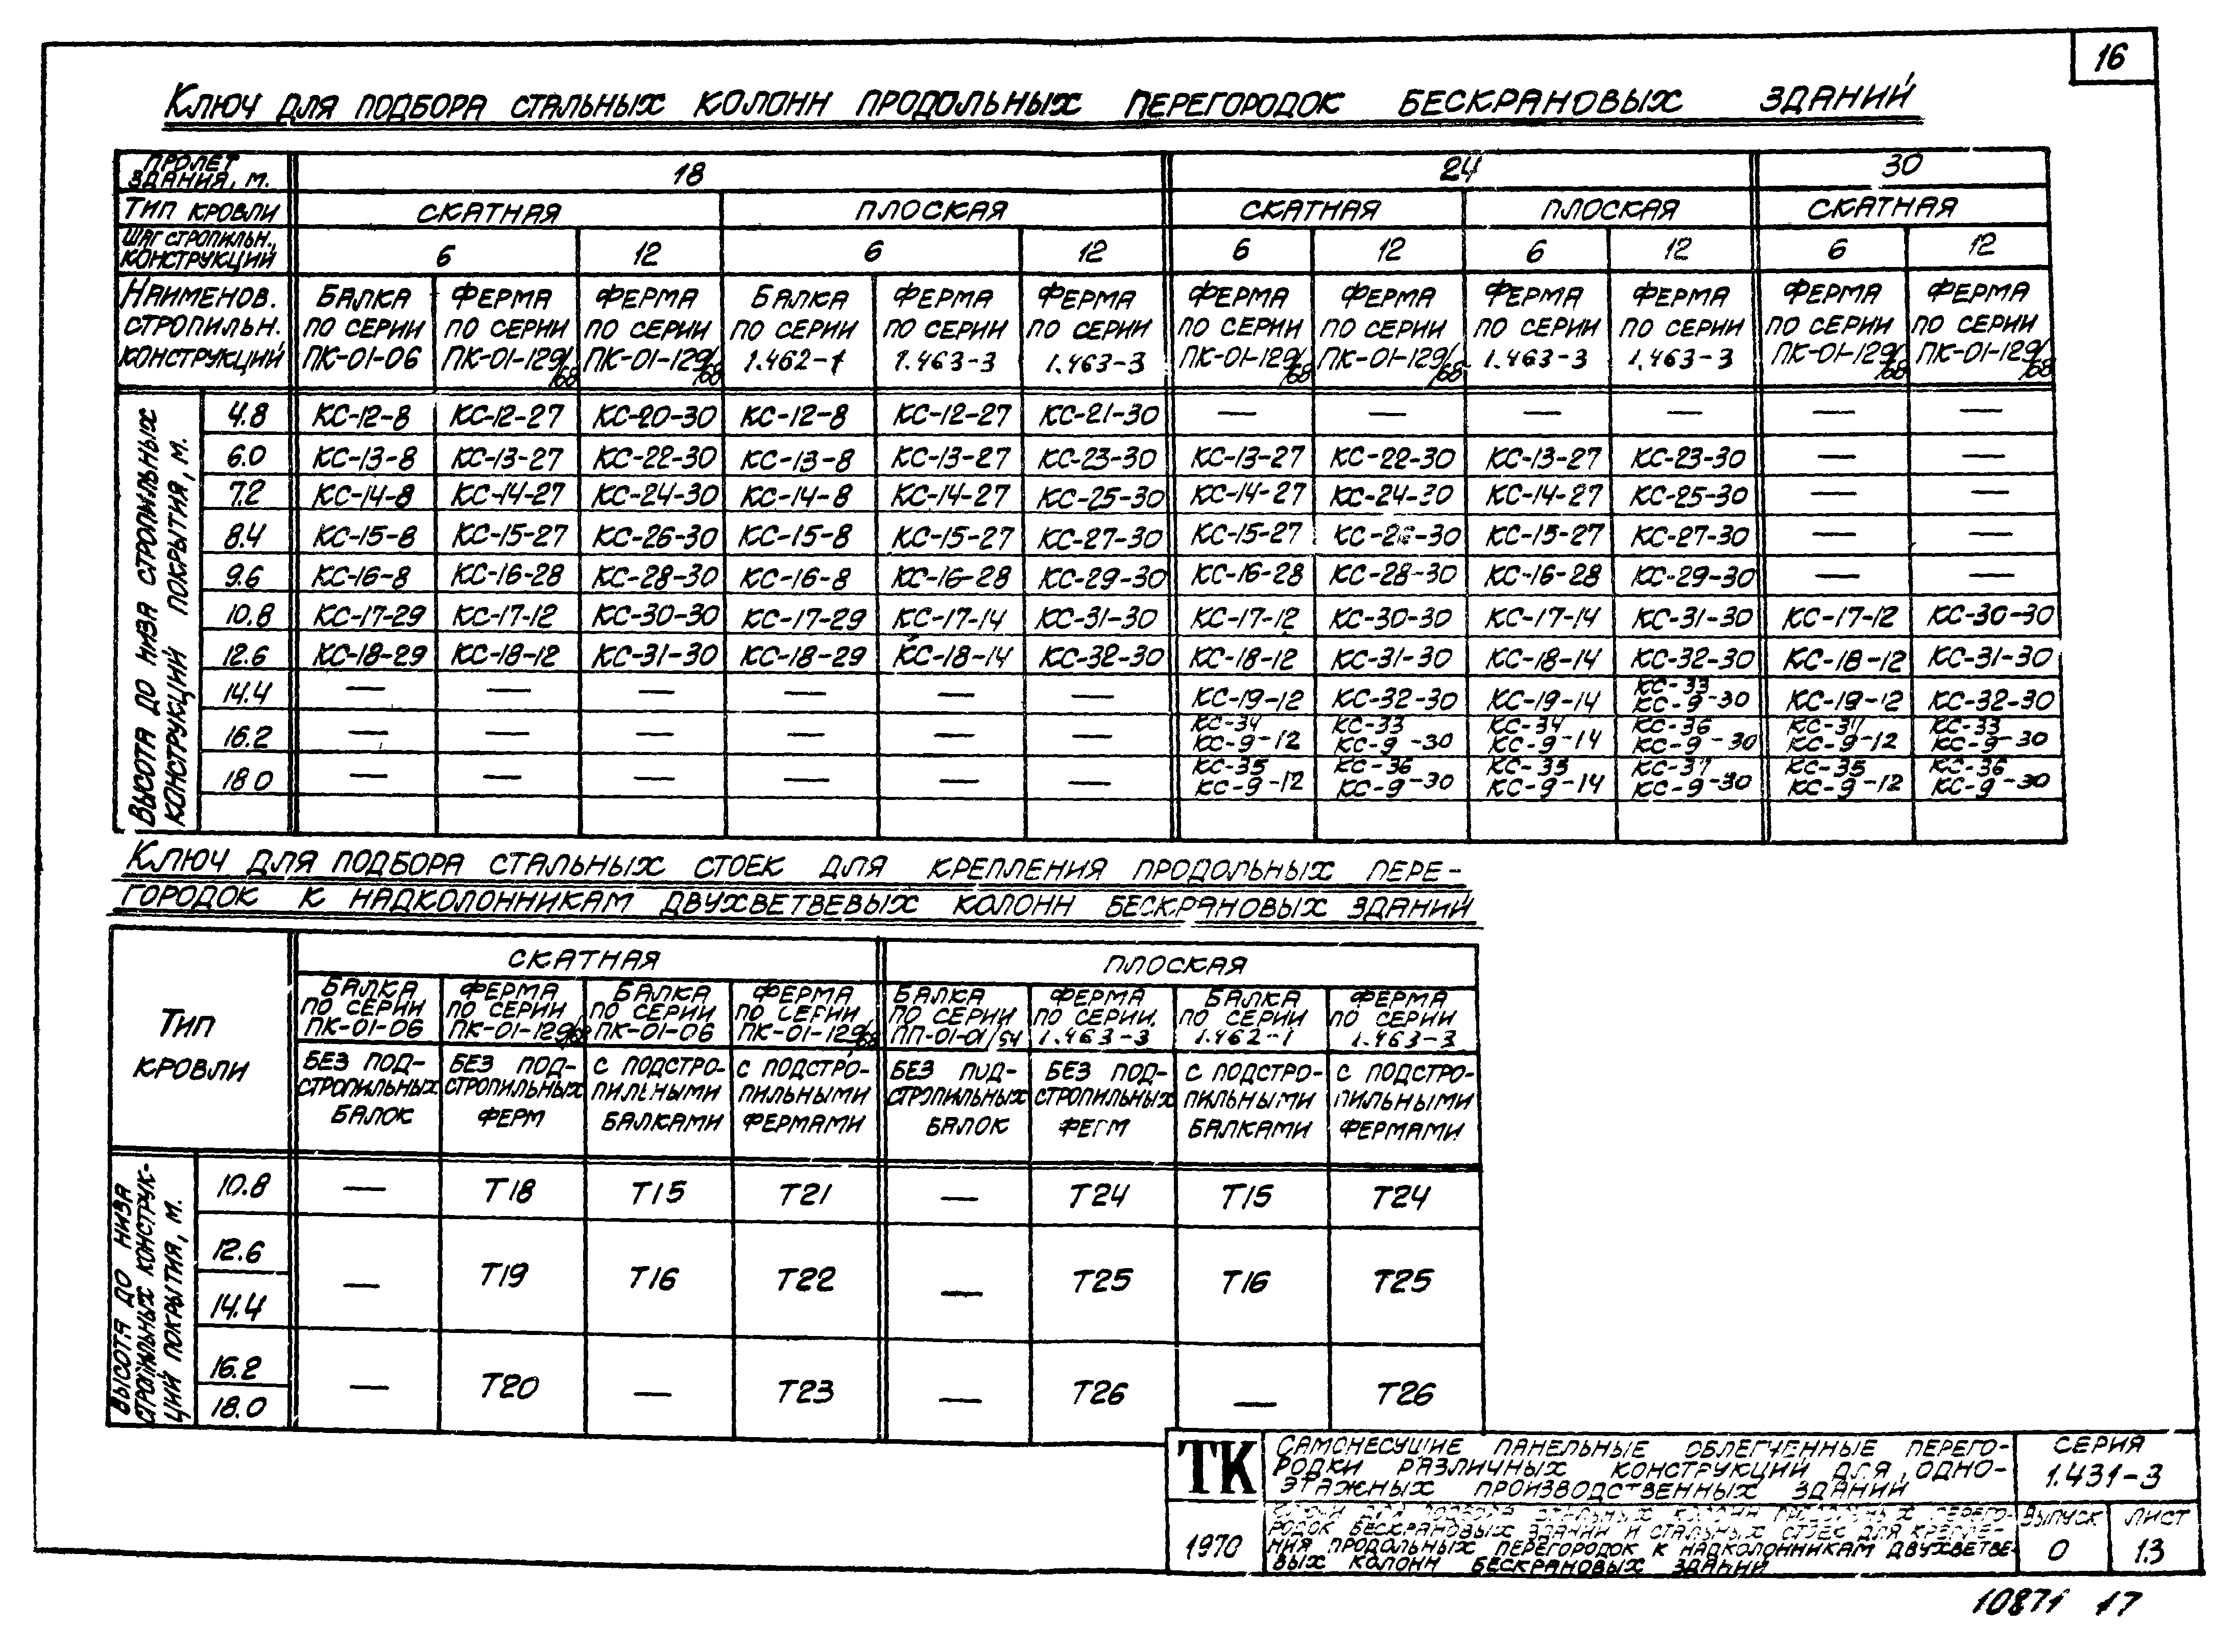 16
Ключ для подбора стальных колонн продольных перегородок бескрановых зданий
Пролет здания, м. 18 24 30
Тип кровли скатная плоская скатная плоская скатная
Шаг стропильн., конструкций 6 12 6 12 6 12 6 12 6 12
Наименов. Балка Ферма Ферма Балка Ферма Ферма Ферма Ферма Ферма Ферма Ферма Ферма
стропильн. по серии по серии по серии по серии по серии по серии по серии по серии по серии по серии по серии по серии
конструкций ПК-01-06 ПК-01-129/68 ПК-01-129/68 1.462-1 1.463-3 1.463-3 ПК-01-129/68 ПК-01-129/68 1.463-3 1.463-3 ПК-01-129/68 ПК-01-129/68
Высота до низа стропильных
конструкций покрытия, м.
4.8 КС-12-8 КС-12-27 КС-20-30 КС-12-8 КС-12-27 КС-21-30 — — — — — —
6.0 КС-13-8 КС-13-27 КС-22-30 КС-13-8 КС-13-27 КС-23-30 КС-13-27 КС-22-30 КС-13-27 КС-23-30 — —
7.2 КС-14-8 КС-14-27 КС-24-30 КС-14-8 КС-14-27 КС-25-30 КС-14-27 КС-24-30 КС-14-27 КС-25-30 — —
8.4 КС-15-8 КС-15-27 КС-26-30 КС-15-8 КС-15-27 КС-27-30 КС-15-27 КС-26-30 КС-15-27 КС-27-30 — —
9.6 КС-16-8 КС-16-28 КС-28-30 КС-16-8 КС-16-28 КС-29-30 КС-16-28 КС-28-30 КС-16-28 КС-29-30 — —
10.8 КС-17-29 КС-17-12 КС-30-30 КС-17-29 КС-17-14 КС-31-30 КС-17-12 КС-30-30 КС-17-14 КС-31-30 КС-17-12 КС-30-30
12.6 КС-18-29 КС-18-12 КС-31-30 КС-18-29 КС-18-14 КС-32-30 КС-18-12 КС-31-30 КС-18-14 КС-32-30 КС-18-12 КС-31-30
14.4 — — — — — — КС-19-12 КС-32-30 КС-19-14 КС-33 КС-9-30 КС-19-12 КС-32-30
16.2 — — — — — — КС-34 КС-9-12 КС-33 КС-9-30 КС-34 КС-9-14 КС-36 КС-9-30 КС-34 КС-9-12 КС-33 КС-9-30
18.0 — — — — — — КС-35 КС-9-12 КС-36 КС-9-30 КС-35 КС-9-14 КС-37 КС-9-30 КС-35 КС-9-12 КС-36 КС-9-30
Ключ для подбора стальных стоек для крепления продольных пере-
городок к надколонникам двухветвевых колонн бескрановых зданий
Тип кровли
скатная плоская
Балка Ферма Балка Ферма Балка Ферма Балка Ферма
по серии по серии по серии по серии по серии по серии по серии по серии
ПК-01-06 ПК-01-129/68 ПК-01-06 ПК-01-129/68 ПП-01-01/64 1.463-3 1.462-1 1.463-3
без под- без под- с подстро- с подстро- без под- без под- с подстро- с подстро-
стропильных стропильных пильными пильными стропильных стропильных пильными пильными
балок ферм балками фермами балок ферм балками фермами
Высота до низа
стропильных конструк-
ций покрытия, м.
10.8 — Т18 Т15 Т21 — Т24 Т15 Т24
12.6
14.4 — Т19 Т16 Т22 — Т25 Т16 Т25
16.2
18.0 — Т20 — Т23 — Т26 — Т26
ТК
Самонесущие панельные облегченные перего-
родки различных конструкций для одно-
этажных производственных зданий
Серия
1.431-3
1970
Ключи для подбора стальных колонн продольных перего-
родок бескрановых зданий и стальных стоек для крепле-
ния продольных перегородок к надколонникам двухветве-
вых колонн бескрановых зданий
Выпуск Лист
0 1.3
10871 17